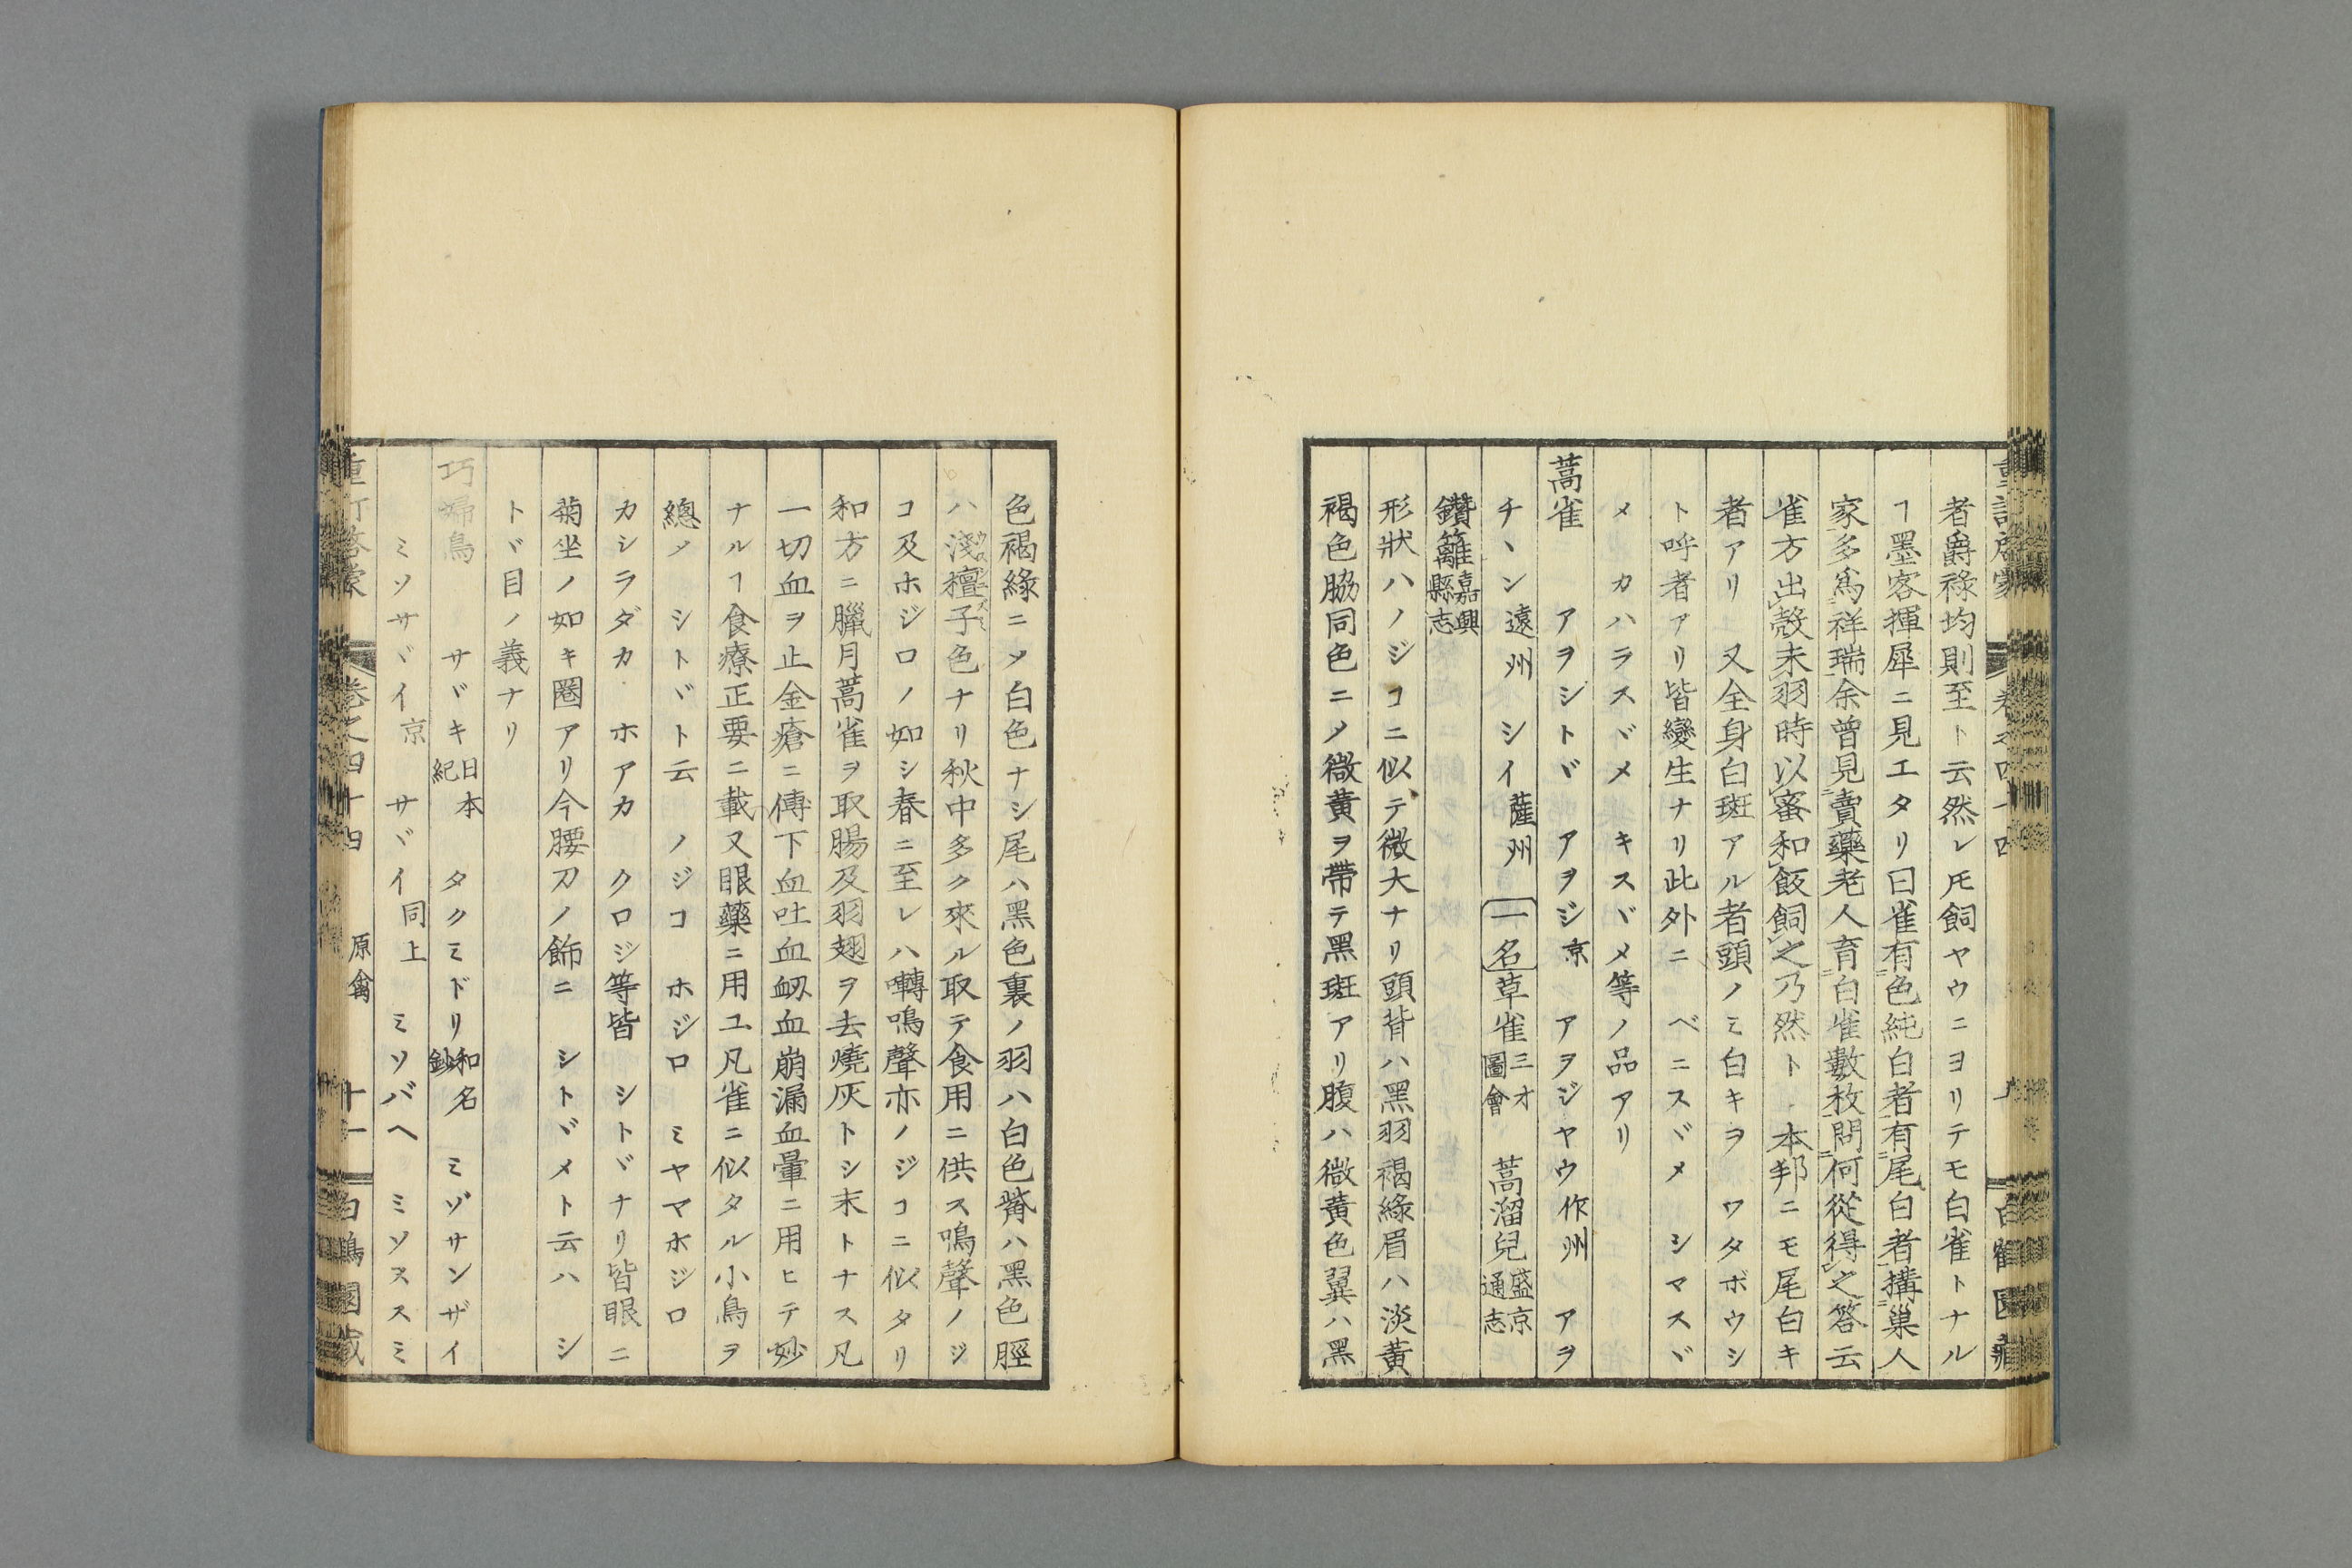 者爵祿均則至ト云然レ𪜈飼ヤウニヨリテモ白雀トナル
ヿ墨客揮犀ニ見エタリ曰雀有色純白者有尾白者搆巢人
家多爲祥瑞余曾見賣藥老人育白雀數枚問何從得之答云
雀方出殼未羽時以蜜和飯飼之乃然ト 本邦ニモ尾白キ
者アリ 又全身白斑アル者頭ノミ白キヲ ワタボウシ
ト呼者アリ皆變生ナリ此外ニ ベニスヾメ シマスヾ
メ カハラスヾメ キスヾメ等ノ品アリ
蒿雀 アヲシトヾ アヲジ京 アヲジヤウ作州 アヲ
チヽン遠州 シイ薩州 一名草雀三才圖會 蒿溜兒盛京通志
鑽籬嘉興縣志
形狀ハノジコニ似テ微大ナリ頭背ハ黑羽褐綠眉ハ淡黃
褐色脇同色ニ〆微黃ヲ帶テ黑斑アリ腹ハ微黃色翼ハ黑
色褐緣ニ〆白色ナシ尾ハ黑色裏ノ羽ハ白色觜ハ黑色脛
ハ淺檀子色ナリ秋中多ク來ル取テ食用ニ供ス鳴聲ノジ
コ及ホジロノ如シ春ニ至レハ囀鳴聲亦ノジコニ似タリ
和方ニ臘月蒿雀ヲ取腸及羽翅ヲ去燒灰トシ末トナス凡
一切血ヲ止金瘡ニ傅下血吐血衂血崩漏血暈ニ用ヒテ妙
ナルヿ食療正要ニ載又眼藥ニ用ユ凡雀ニ似タル小鳥ヲ
總〆 シトヾト云 ノジコ ホジロ ミヤマホジロ
カシラダカ ホアカ クロジ等皆 シトヾナリ皆眼ニ
菊坐ノ如キ圈アリ今腰刀ノ飾ニ シトヾメト云ハ シ
トヾ目ノ義ナリ
巧婦鳥 サヾキ日本紀 タクミドリ和名鈔 ミゾサンザイ
ミソサヾイ京 サヾイ同上 ミソバヘ ミソヌスミ
卷之四十四 原禽 十一